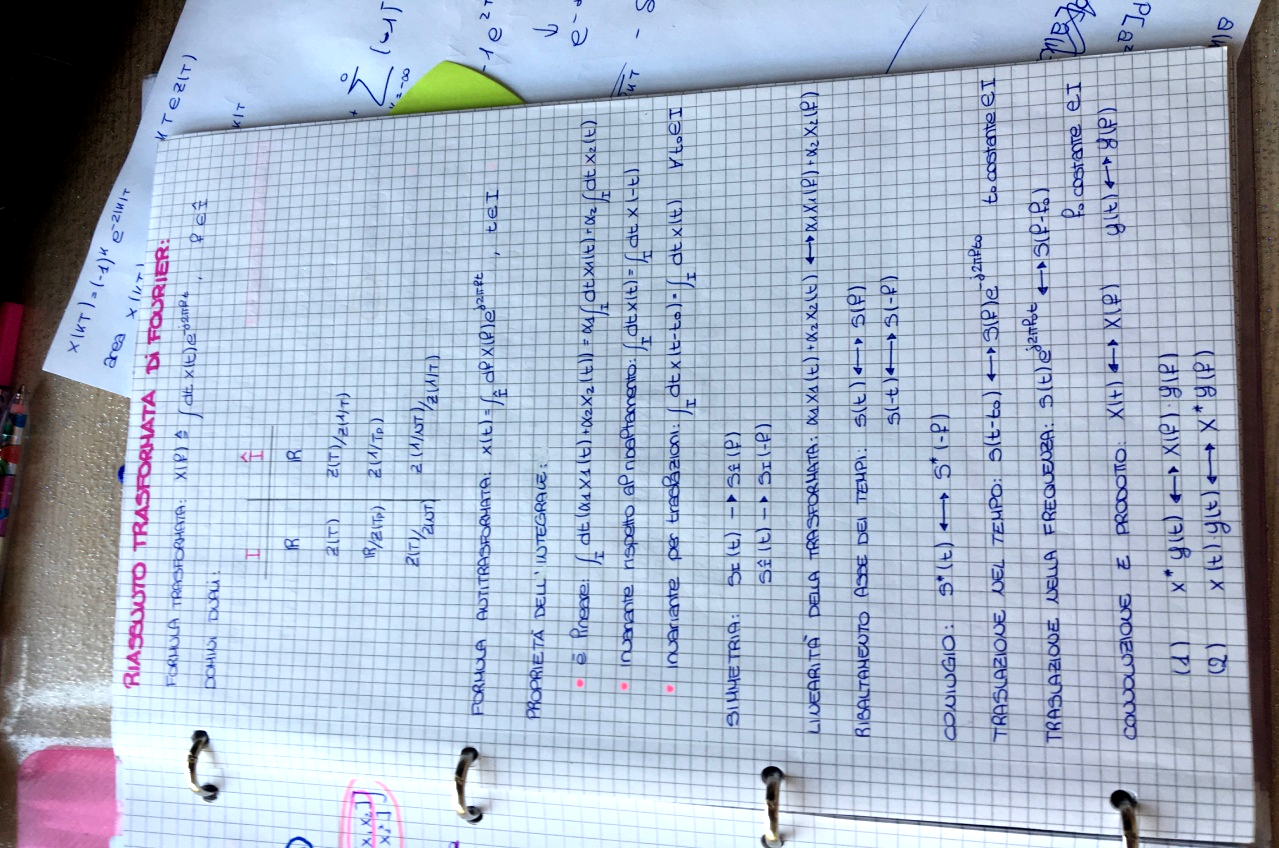 RIASSUNTO TRASFORMATA DI FOURIER:
FORMULA TRASFORMATA: X(f) ≜ ∫ dt x(t) e^-j2πft , f ∈ Î
DOMINI DUALI:
I Î
ℝ ℝ
Z(T) Z(T)/Z(1/T)
ℝ/Z(Tp) Z(1/Tp)
Z(T)/Z(NT) Z(1/NT)/Z(1/T)
FORMULA ANTITRASFORMATA: x(t) = ∫_Î df X(f) e^j2πft , t ∈ I
PROPRIETÀ DELL'INTEGRALE:
• è lineare: ∫_I dt (α1 x1(t) + α2 x2(t)) = α1 ∫_I dt x1(t) + α2 ∫_I dt x2(t)
• invariante rispetto al ribaltamento: ∫_I dt x(t) = ∫_I dt x(-t)
• invariante per traslazioni: ∫_I dt x(t-t0) = ∫_I dt x(t) ∀ t0 ∈ I
SIMMETRIA: S_I(t) → S_Î(f)
S_Î(t) → S_I(-f)
LINEARITÀ DELLA TRASFORMATA: α1 x1(t) + α2 x2(t) ↔ α1 X1(f) + α2 X2(f)
RIBALTAMENTO ASSE DEI TEMPI: s(t) ↔ S(f)
s(-t) ↔ S(-f)
CONIUGIO: s*(t) ↔ S*(-f)
TRASLAZIONE NEL TEMPO: s(t-t0) ↔ S(f) e^-j2πft0 t0 costante ∈ I
TRASLAZIONE NELLA FREQUENZA: s(t) e^j2πf0t ↔ S(f-f0)
f0 costante ∈ Î
CONVOLUZIONE E PRODOTTO: x(t) ↔ X(f) y(t) ↔ Y(f)
(1) x * y(t) ↔ X(f) · Y(f)
(2) x(t) · y(t) ↔ X * Y(f)
x(KT) = (-1)^K e^-2|K|T
area x(KT)
KT ∈ Z(T)